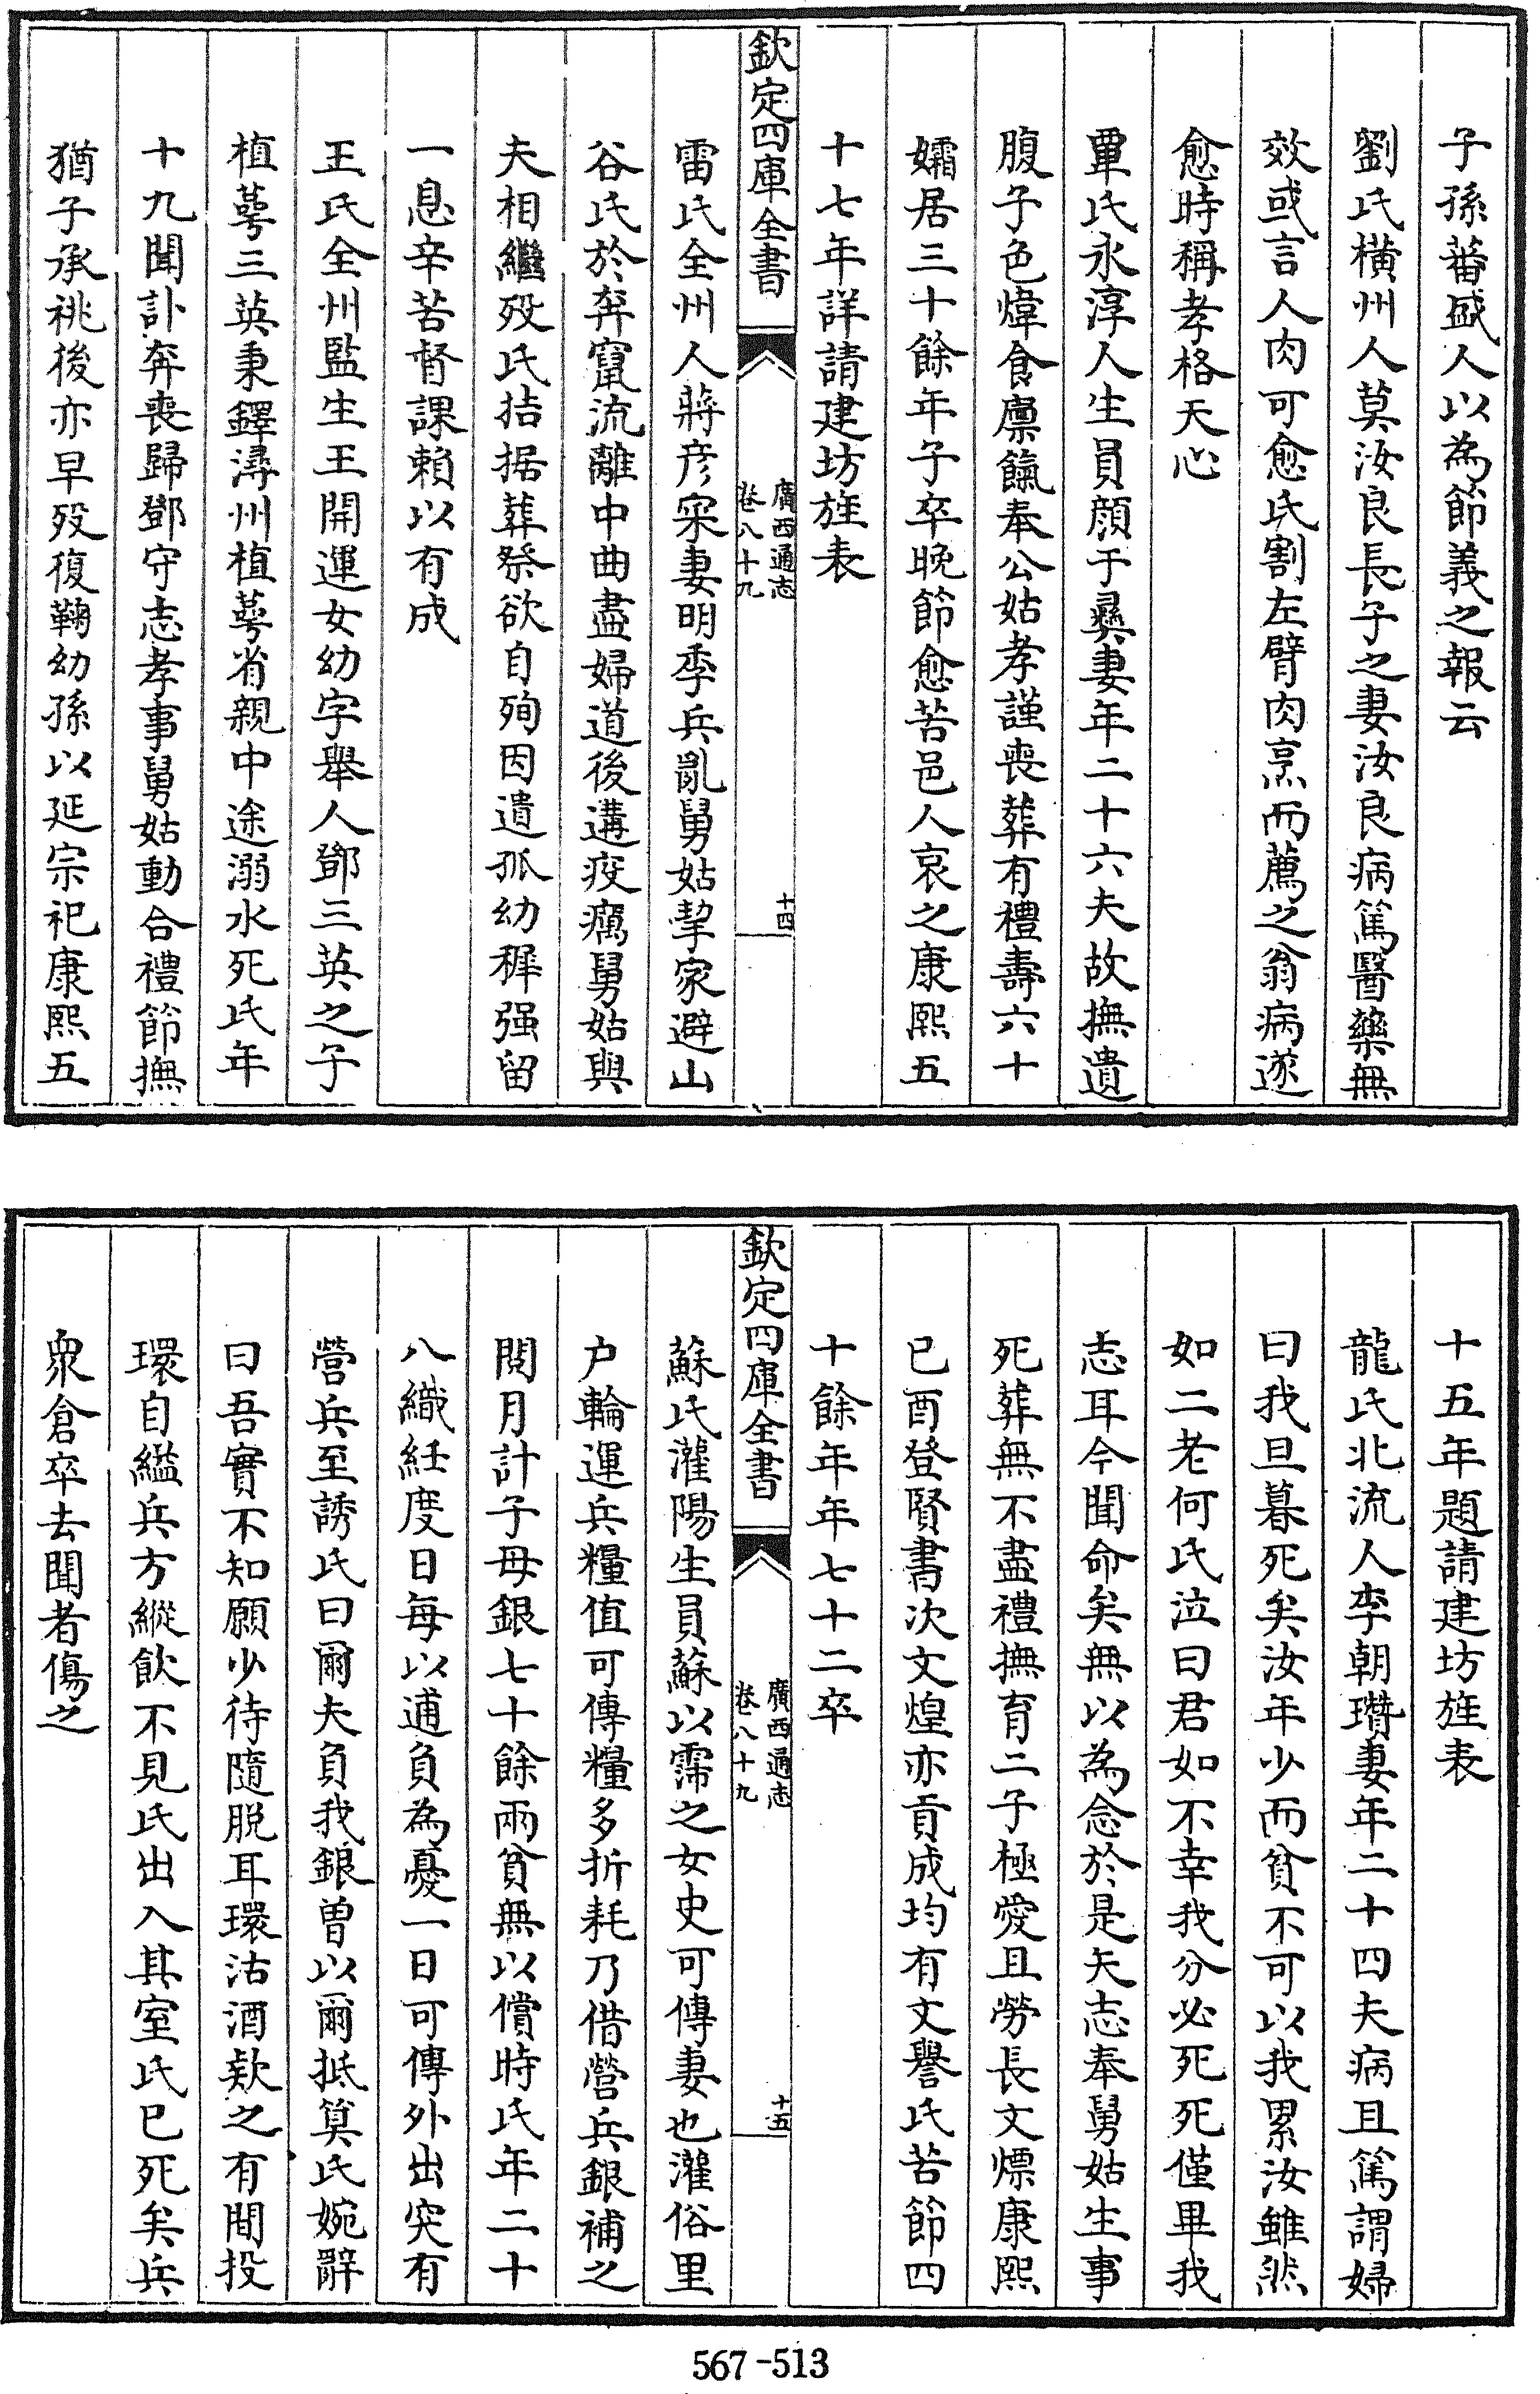 子孫蕃盛人以為節義之報云
劉氏橫州人莫汝良長子之妻汝良病篤醫藥無
效或言人肉可愈氏割左臂肉烹而薦之翁病遂
愈時稱孝格天心
覃氏永淳人生員顔于彛妻年二十六夫故撫遺
腹子色煒食廪餼奉公姑孝謹喪葬有禮壽六十
孀居三十餘年子卒晚節愈苦邑人哀之康熙五
十七年詳請建坊旌表
欽定四庫全書
廣西通志
卷八十九
十四
雷氏全州人蔣彦寀妻明季兵亂舅姑挈家避山
谷氏於奔竄流離中曲盡婦道後遘疫癘舅姑與
夫相繼歿氏拮据葬祭欲自殉因遺孤幼穉强留
一息辛苦督課賴以有成
王氏全州監生王開運女幼字舉人鄧三英之子
植蕚三英秉鐸潯州植蕚省親中途溺水死氏年
十九聞訃奔喪歸鄧守志孝事舅姑動合禮節撫
猶子承祧後亦早歿復鞠幼孫以延宗祀康熙五
十五年題請建坊旌表
龍氏北流人李朝瓚妻年二十四夫病且篤謂婦
曰我旦暮死矣汝年少而貧不可以我累汝雖然
如二老何氏泣曰君如不幸我分必死死僅畢我
志耳今聞命矣無以為念於是矢志奉舅姑生事
死葬無不盡禮撫育二子極愛且勞長文煙康熙
已酉登賢書次文煌亦貢成均有文譽氏苦節四
十餘年年七十二卒
欽定四庫全書
廣西通志
卷八十九
十五
蘇氏灌陽生員蘇以霈之女史可傳妻也灌俗里
户輪運兵糧值可傳糧多折耗乃借營兵銀補之
閱月計子母銀七十餘兩貧無以償時氏年二十
八織絍度日每以逋負為憂一日可傳外出突有
營兵至誘氏曰爾夫負我銀曾以爾抵筭氏婉辭
曰吾實不知願少待隨脱耳環沽酒欵之有間投
環自縊兵方縱飲不見氏出入其室氏已死矣兵
衆倉卒去聞者傷之
567-513